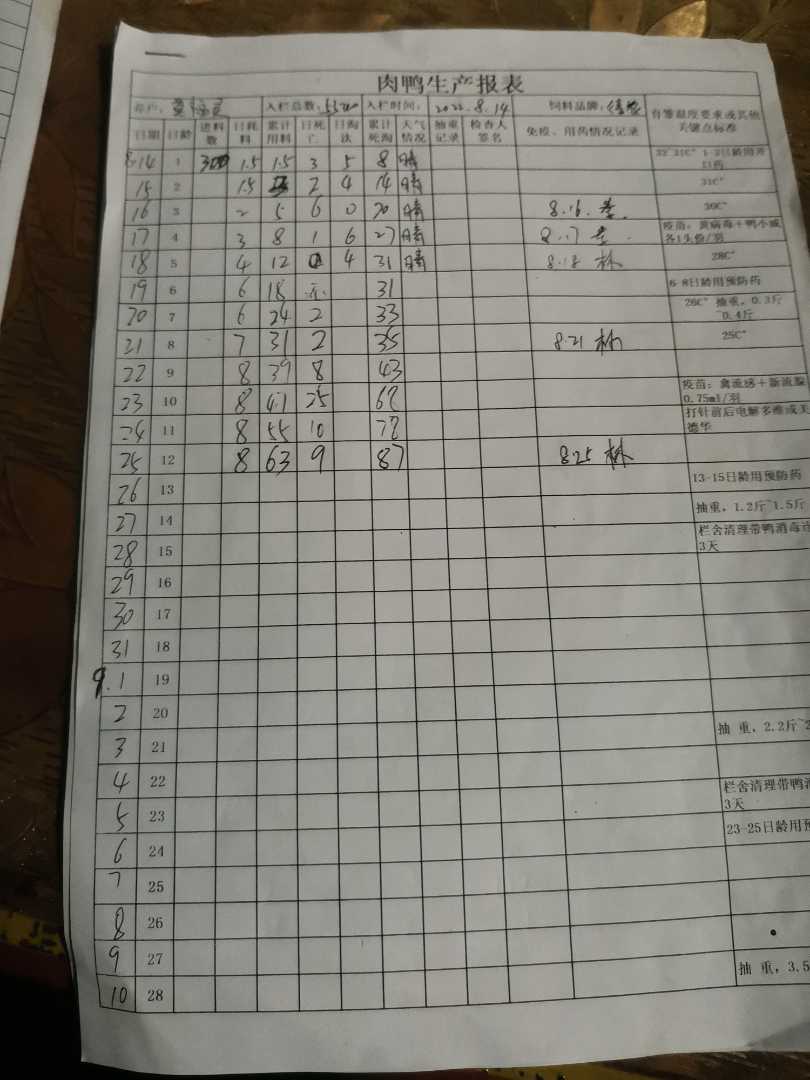 肉鸭生产报表
养户: 入栏总数: 5500 入栏时间: 2022.8.14 饲料品牌: 育雏温度要求或其他关键点标准
日期 日龄 进料数 日耗料 累计用料 日死亡 日淘汰 累计死淘 天气情况 抽重记录 检查人签名 免疫、用药情况记录
8.14 1 300 1.5 1.5 3 5 8 晴 32~31C° 1-3日龄用开口药
15 2 1.5 3 2 4 14 晴 31C°
16 3 2 5 6 0 20 晴 8.16. 30C°
17 4 3 8 1 6 27 晴 8.17 疫苗:黄病毒+鸭小减各1头份/羽
18 5 4 12 0 4 31 晴 8.18 林 28C°
19 6 6 18 31 6-8日龄用预防药
20 7 6 24 2 33 26C° 抽重,0.3斤~0.4斤
21 8 7 31 2 35 8.21 林 25C°
22 9 8 39 8 43
23 10 8 47 25 68 疫苗:禽流感+新流腺0.75ml/羽
24 11 8 55 10 78 打针前后电解多维或美德华
25 12 8 63 9 87 8.25 林
26 13 13-15日龄用预防药
27 14 抽重,1.2斤~1.5斤
28 15 栏舍清理带鸭消毒 3天
29 16
30 17
31 18
9.1 19
2 20
3 21 抽 重,2.2斤~2
4 22
5 23 栏舍清理带鸭 3天
6 24 23-25日龄用预
7 25
8 26
9 27
10 28 抽 重,3.5